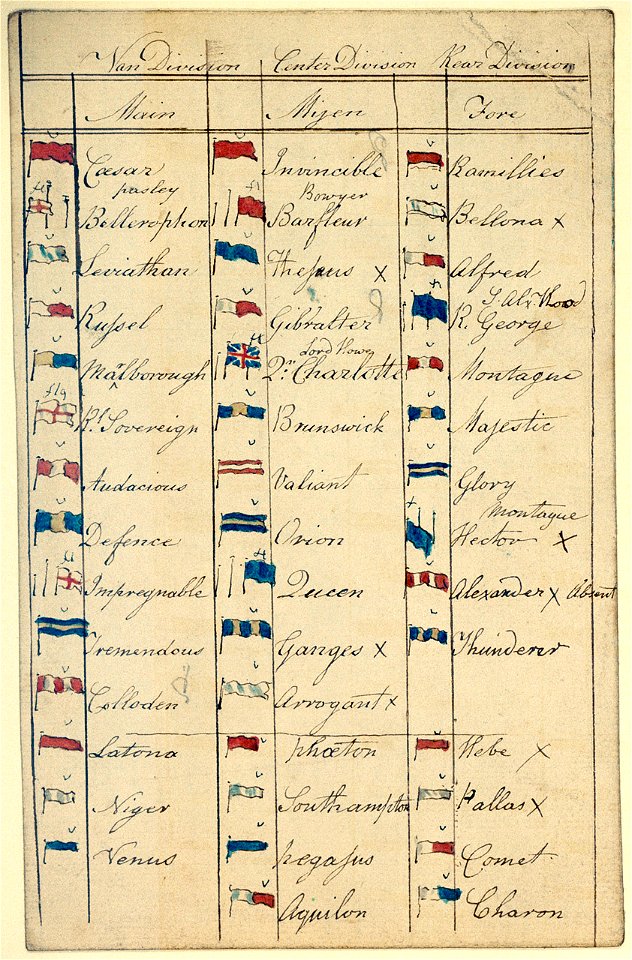 Van Division Center Division Rear Division
Main Mizen Fore
Cæsar Invincible Ramillies
pasley Bowyer
Bellerophon Barfleur Bellona x
Leviathan Theseus x Alfred
S. Alx. Hood
Russel Gibralter R. George
Lord Howe
Marlborough Qn. Charlotte Montague
flg
Rl. Sovereign Brunswick Majestic
Audacious Valiant Glory
Montague
Defence Orion Hector x
Impregnable Queen Alexander x Absent
Tremendous Ganges x Thunderer
Colloden Arrogant x
Latona phæton Hebe x
Niger Southampton Pallas x
Venus pegasus Comet
Aquilon Charon